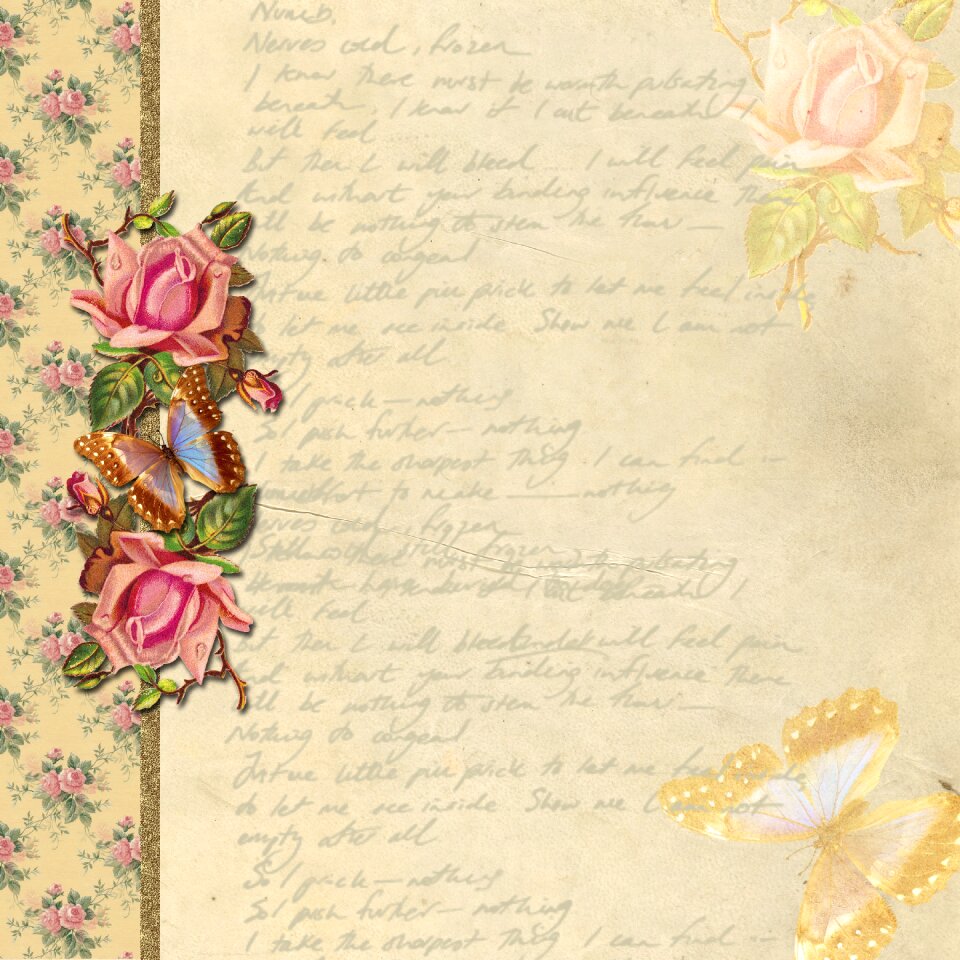 Numb.
Nerves cold, frozen
I know there must be warmth pulsating
beneath. I know if I cut beneath I
will feel
But then I will bleed I will feel pain
And without your binding influence there
will be nothing to stem the flow —
Nothing to congeal
Just one little pin prick to let me feel inside
to let me see inside Show me I am not
empty after all
So I prick — nothing
So I push further — nothing
I take the sharpest thing I can find —
to make — nothing
Nerves cold, frozen
still frozen
beneath I
will feel
But then I will will feel pain
And without your binding influence there
will be nothing to stem the flow —
Nothing to congeal
Just one little pin prick to let me feel inside
to let me see inside Show me I am not
empty after all
So I prick — nothing
So I push further — nothing
I take the sharpest thing I can find —